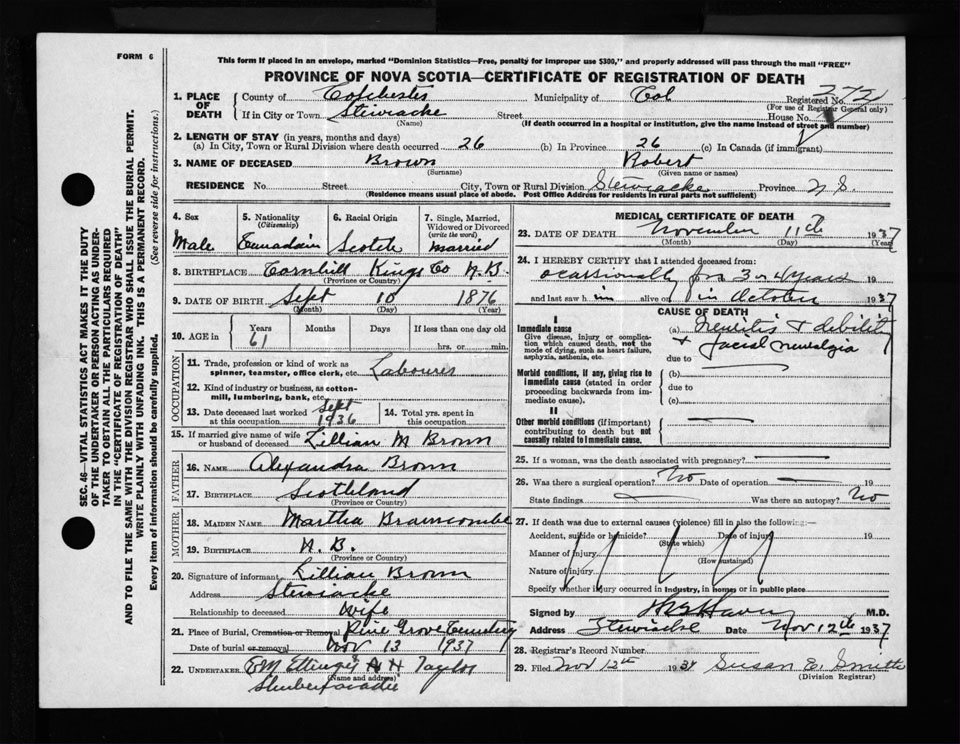 FORM 6
This form if placed in an envelope, marked "Dominion Statistics—Free, penalty for improper use $300," and properly addressed will pass through the mail "FREE"
PROVINCE OF NOVA SCOTIA—CERTIFICATE OF REGISTRATION OF DEATH
SEC. 46—VITAL STATISTICS ACT MAKES IT THE DUTY
OF THE UNDERTAKER OR PERSON ACTING AS UNDER-
TAKER TO OBTAIN ALL THE PARTICULARS REQUIRED
IN THE "CERTIFICATE OF REGISTRATION OF DEATH"
AND TO FILE THE SAME WITH THE DIVISION REGISTRAR WHO SHALL ISSUE THE BURIAL PERMIT.
WRITE PLAINLY WITH UNFADING INK. THIS IS A PERMANENT RECORD.
Every item of information should be carefully supplied. (See reverse side for instructions.)
1. PLACE OF DEATH County of Colchester Municipality of Col Registered No. 272
(For use of Registrar General only)
If in City or Town Stewiacke Street House No.
(Name) (If death occurred in a hospital or institution, give the name instead of street and number)
2. LENGTH OF STAY (in years, months and days)
(a) In City, Town or Rural Division where death occurred 26 (b) In Province 26 (c) In Canada (if immigrant)
3. NAME OF DECEASED Brown Robert
(Surname) (Given name or names)
RESIDENCE No. Street City, Town or Rural Division Stewiacke Province N S.
(Residence means usual place of abode. Post Office Address for residents in rural parts not sufficient)
4. Sex 5. Nationality (Citizenship) 6. Racial Origin 7. Single, Married, Widowed or Divorced (write the word)
Male Canadain Scotch Married
8. BIRTHPLACE Cornhill Kings Co N.B.
(Province or Country)
9. DATE OF BIRTH Sept 10 1876
(Month) (Day) (Year)
10. AGE in Years Months Days If less than one day old
61 hrs. or min.
OCCUPATION
11. Trade, profession or kind of work as spinner, teamster, office clerk, etc. Labourer
12. Kind of industry or business, as cotton-mill, lumbering, bank, etc.
13. Date deceased last worked at this occupation Sept 1936 14. Total yrs. spent in this occupation
15. If married give name of wife or husband of deceased Lillian M Brown
FATHER
16. NAME Alexandra Brown
17. BIRTHPLACE Scothland
(Province or Country)
MOTHER
18. MAIDEN NAME Martha Branscombe
19. BIRTHPLACE N. B.
(Province or Country)
20. Signature of informant Lillian Brown
Address Stewiacke
Relationship to deceased Wife
21. Place of Burial, Cremation or Removal Pine Grove Cemetery
Date of burial or removal Nov 13 1937
22. UNDERTAKER Taylor
(Name and address)
MEDICAL CERTIFICATE OF DEATH
23. DATE OF DEATH November 11th 1937
(Month) (Day) (Year)
24. I HEREBY CERTIFY that I attended deceased from:
ocassionally for 3 or 4 years 19
and last saw h im alive on in October 1937
CAUSE OF DEATH
I
Immediate cause
Give disease, injury or complication which caused death, not the mode of dying, such as heart failure, asphyxia, asthenia, etc.
(a) Neuritis & debility
& facial neuralgia
due to
Morbid conditions, if any, giving rise to immediate cause (stated in order proceeding backwards from immediate cause).
(b)
due to
(c)
II
Other morbid conditions (if important) contributing to death but not causally related to immediate cause.
25. If a woman, was the death associated with pregnancy?
26. Was there a surgical operation? No Date of operation 19
State findings Was there an autopsy? No
27. If death was due to external causes (violence) fill in also the following:—
Accident, suicide or homicide? Date of injury 19
(State which)
Manner of injury
(How sustained)
Nature of injury
Specify whether injury occurred in Industry, in homes or in public place
Signed by M.D.
Address Stewiacke Date Nov 12th 1937
28. Registrar's Record Number
29. Filed Nov 12th 1937 Susan E. Smith
(Division Registrar)